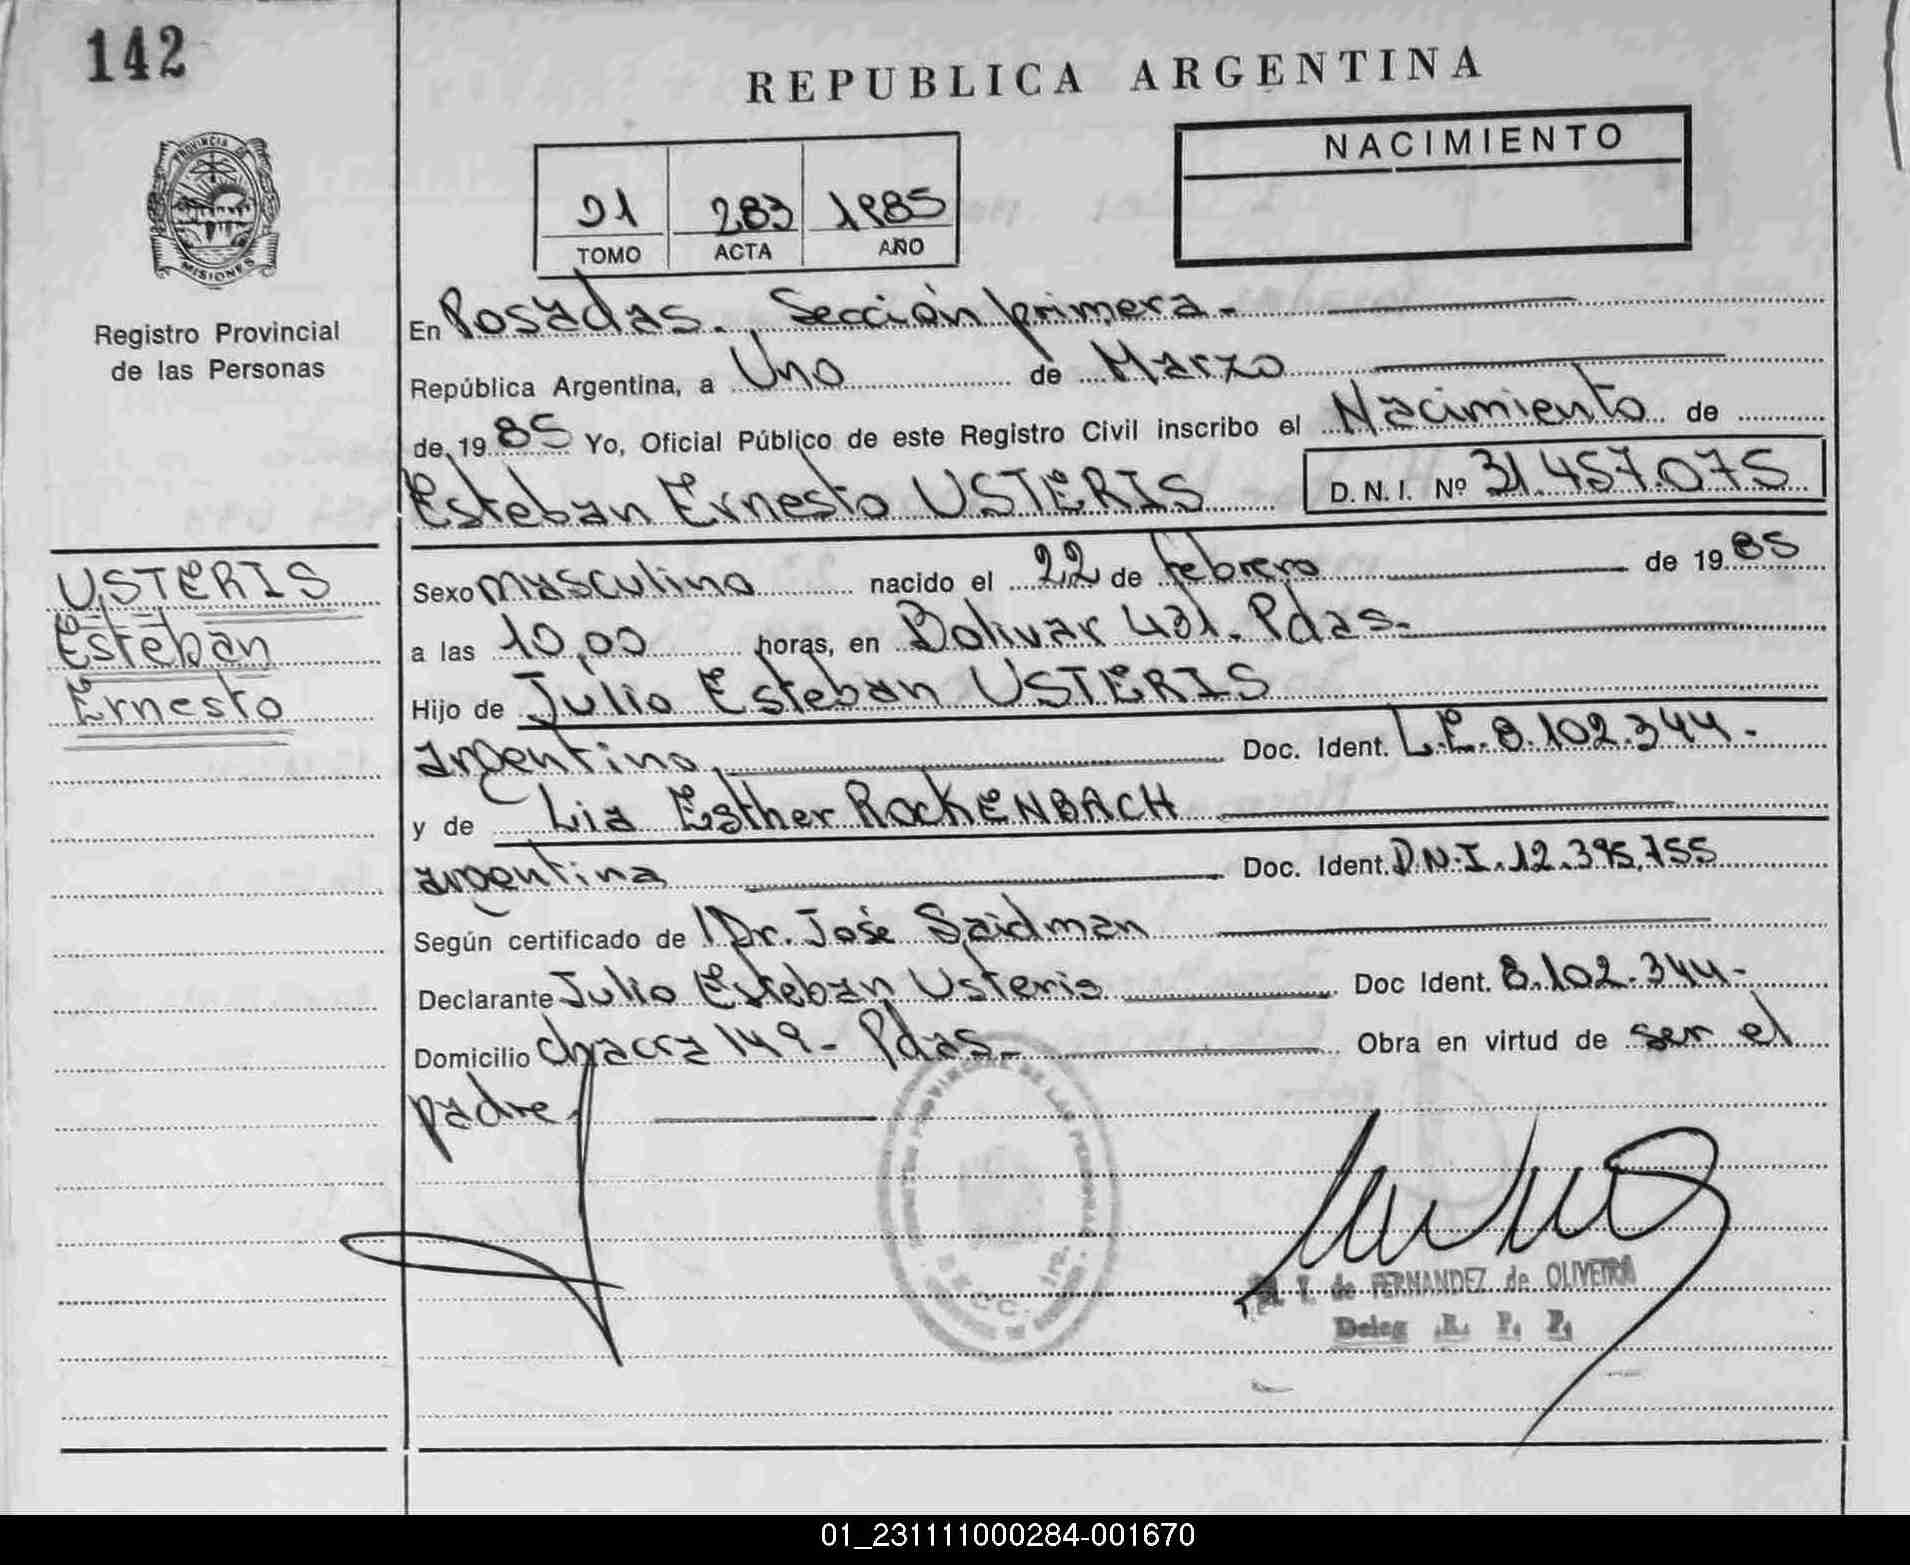 142
REPUBLICA ARGENTINA
PROVINCIA DE
MISIONES
NACIMIENTO
283 1985
TOMO ACTA AÑO
Registro Provincial
de las Personas
En Posadas. Sección primera.
República Argentina, a Uno de Marzo
de 1985 Yo, Oficial Público de este Registro Civil inscribo el Nacimiento de
Esteban Ernesto USTERIS D. N. I. Nº 31.457.075
USTERIS
Esteban
Ernesto
Sexo masculino nacido el 22 de febrero de 1985
a las 10,00 horas, en Bolivar 431. Pdas.
Hijo de Julio Esteban USTERIS
argentino Doc. Ident. L.E. 8.102.344.
y de Lia Esther ROCKENBACH
argentina Doc. Ident. D.N.I. 12.395.755
Según certificado de Dr. José Saidman
Declarante Julio Esteban Usteris Doc Ident. 8.102.344-
Domicilio chacra 149- Pdas- Obra en virtud de ser el
padre
de FERNANDEZ de OLIVEIRA
Deleg .R. P. P.
01_231111000284-001670